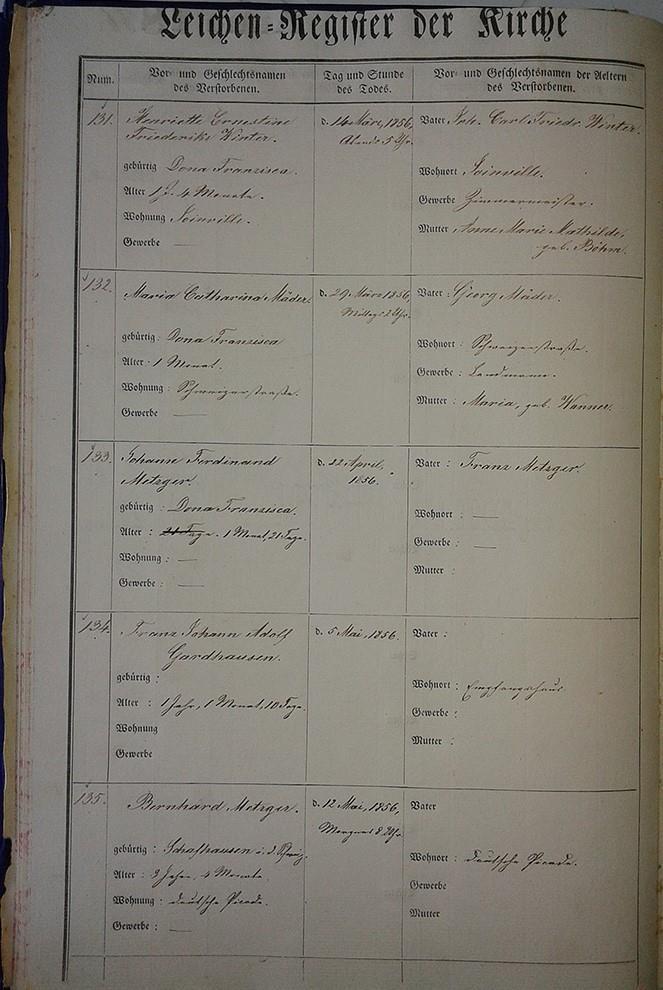 Leichen-Register der Kirche
Num.
Vor- und Geschlechtsnamen
des Verstorbenen.
Tag und Stunde
des Todes.
Vor- und Geschlechtsnamen der Aeltern
des Verstorbenen.
131.
Henriette Ernestine
Friederike Winter.
gebürtig Dona Franzisca.
Alter 1 J. 4 Monate.
Wohnung Joinville.
Gewerbe —
d. 14 März, 1856,
Abends 5 Uhr.
Vater Joh. Carl Friedr. Winter.
Wohnort Joinville.
Gewerbe Zimmermeister.
Mutter Anne Marie Mathilde,
geb. Böhm.
132.
Maria Catharina Mäder.
gebürtig: Dona Franzisca
Alter: 1 Monat.
Wohnung: Schweizerstraße.
Gewerbe —
d. 29 März 1856,
Mittags 2 Uhr.
Vater: Georg Mäder.
Wohnort: Schweizerstraße.
Gewerbe: Landmann.
Mutter: Maria, geb. Wanner.
133.
Johann Ferdinand
Metzger.
gebürtig: Dona Franzisca.
Alter: 21 Tage. 1 Monat, 21 Tage.
Wohnung: —
Gewerbe: —
d. 22 April,
1856.
Vater: Franz Metzger.
Wohnort: —
Gewerbe: —
Mutter:
134.
Franz Johann Adolf
Gardhausen.
gebürtig:
Alter: 1 Jahr, 1 Monat, 10 Tage.
Wohnung
Gewerbe
d. 5 Mai, 1856.
Vater:
Wohnort: Empfangshaus
Gewerbe:
Mutter:
135.
Bernhard Metzger.
gebürtig: Schafhausen i. d. Schweiz.
Alter: 3 Jahre, 4 Monate.
Wohnung: deutsche Picade.
Gewerbe: —
d. 12 Mai, 1856,
Morgens 8 Uhr.
Vater
Wohnort: deutsche Picade.
Gewerbe
Mutter